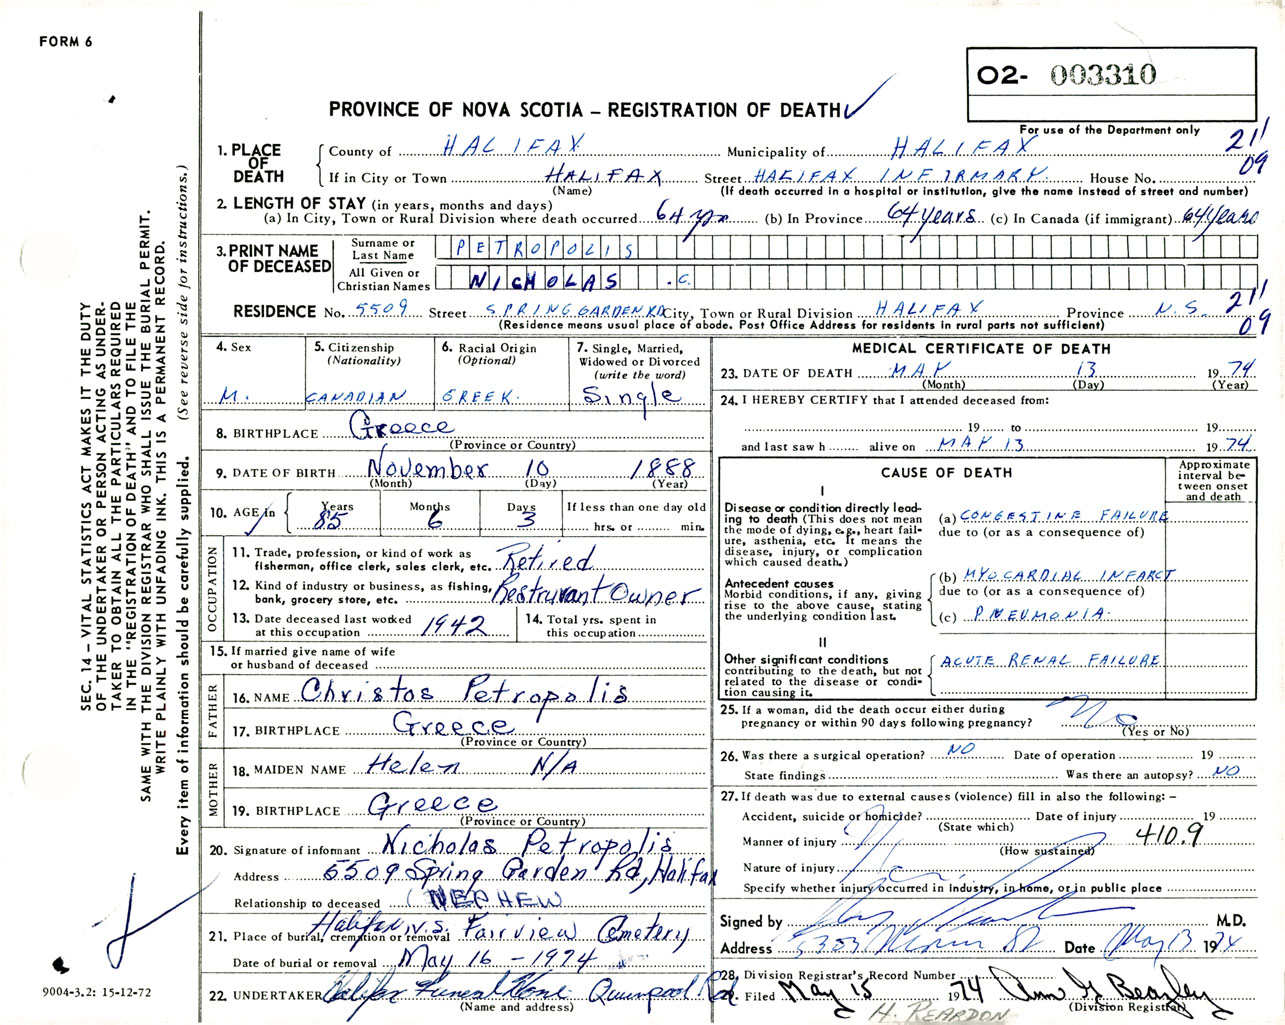 FORM 6
O2- 003310
PROVINCE OF NOVA SCOTIA – REGISTRATION OF DEATH ✓
For use of the Department only
21'
09
1. PLACE OF DEATH
County of HALIFAX Municipality of HALIFAX
If in City or Town HALIFAX Street HALIFAX INFIRMARY House No.
(Name) (If death occurred in a hospital or institution, give the name instead of street and number)
2. LENGTH OF STAY (in years, months and days)
(a) In City, Town or Rural Division where death occurred 64 yrs (b) In Province 64 years (c) In Canada (if immigrant) 64 years
3. PRINT NAME OF DECEASED
Surname or Last Name PETROPOLIS
All Given or Christian Names NICHOLAS .C.
RESIDENCE No. 5509 Street SPRING GARDEN RD City, Town or Rural Division HALIFAX Province N.S.
(Residence means usual place of abode. Post Office Address for residents in rural parts not sufficient)
21'
09
4. Sex
M.
5. Citizenship
(Nationality)
CANADIAN
6. Racial Origin
(Optional)
GREEK
7. Single, Married, Widowed or Divorced
(write the word)
Single
8. BIRTHPLACE Greece
(Province or Country)
9. DATE OF BIRTH November 10 1888
(Month) (Day) (Year)
10. AGE in
Years 85 Months 6 Days 3
If less than one day old
hrs. or min.
OCCUPATION
11. Trade, profession, or kind of work as
fisherman, office clerk, sales clerk, etc. Retired
12. Kind of industry or business, as fishing,
bank, grocery store, etc. Resturant Owner
13. Date deceased last worked
at this occupation 1942
14. Total yrs. spent in
this occupation
15. If married give name of wife
or husband of deceased
FATHER
16. NAME Christos Petropolis
17. BIRTHPLACE Greece
(Province or Country)
MOTHER
18. MAIDEN NAME Helen N/A
19. BIRTHPLACE Greece
(Province or Country)
20. Signature of informant Nicholas Petropolis
Address 5509 Spring Garden Rd, Halifax
Relationship to deceased (NEPHEW
21. Place of burial, cremation or removal Halifax N.S. Fairview Cemetery
Date of burial or removal May 16 - 1974
22. UNDERTAKER Halifax Funeral Home Quinpool Rd.
(Name and address)
MEDICAL CERTIFICATE OF DEATH
23. DATE OF DEATH MAY 13 1974
(Month) (Day) (Year)
24. I HEREBY CERTIFY that I attended deceased from:
19 to 19
and last saw h alive on MAY 13 1974
CAUSE OF DEATH
Approximate interval between onset and death
I
Disease or condition directly leading to death (This does not mean the mode of dying, e.g., heart failure, asthenia, etc. It means the disease, injury, or complication which caused death.)
(a) CONGESTINE FAILURE
due to (or as a consequence of)
Antecedent causes
Morbid conditions, if any, giving rise to the above cause, stating the underlying condition last.
(b) MYOCARDIAL INFARCT
due to (or as a consequence of)
(c) PNEUMONIA
II
Other significant conditions
contributing to the death, but not related to the disease or condition causing it.
ACUTE RENAL FAILURE
25. If a woman, did the death occur either during
pregnancy or within 90 days following pregnancy? No
(Yes or No)
26. Was there a surgical operation? NO Date of operation 19
State findings Was there an autopsy? NO
27. If death was due to external causes (violence) fill in also the following: –
Accident, suicide or homicide? Date of injury 19
(State which)
Manner of injury 410.9
(How sustained)
Nature of injury
Specify whether injury occurred in industry, in home, or in public place
Signed by M.D.
Address Date May 13 1974
28. Division Registrar's Record Number
Filed May 15 1974 Ann G Beazley
(Division Registrar)
H. REARDON
SEC. 14 – VITAL STATISTICS ACT MAKES IT THE DUTY
OF THE UNDERTAKER OR PERSON ACTING AS UNDER-
TAKER TO OBTAIN ALL THE PARTICULARS REQUIRED
IN THE "REGISTRATION OF DEATH" AND TO FILE THE
SAME WITH THE DIVISION REGISTRAR WHO SHALL ISSUE THE BURIAL PERMIT.
WRITE PLAINLY WITH UNFADING INK. THIS IS A PERMANENT RECORD.
Every item of information should be carefully supplied. (See reverse side for instructions.)
9004-3.2: 15-12-72